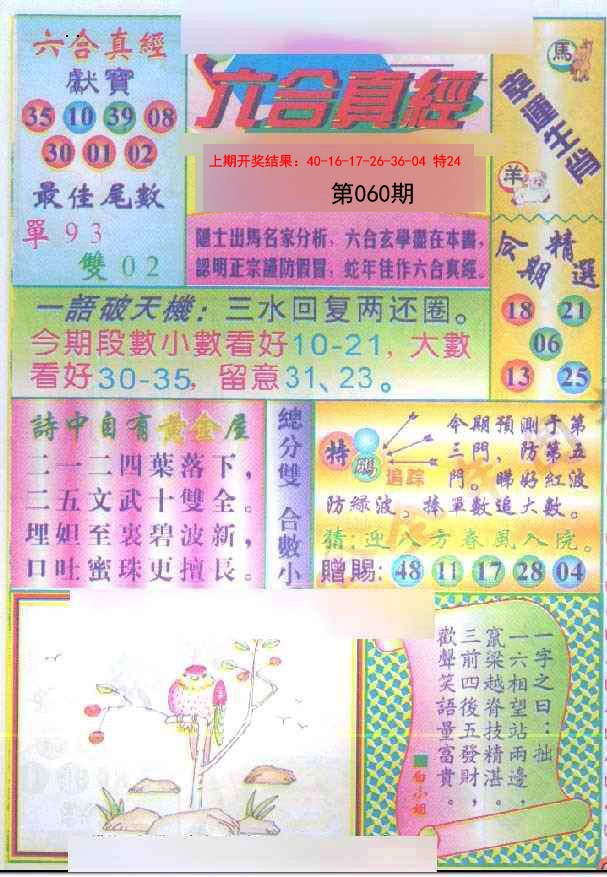 六合真經
獻寶
35 10 39 08
30 01 02
最佳尾數
單 9 3
雙 0 2
六合真經
上期开奖结果: 40-16-17-26-36-04 特24
第060期
隱士出馬名家分析,六合玄學盡在本書,
認明正宗謹防假冒,蛇年佳作六合真經。
馬
幸運生肖
羊
今期精選
18 21
06
13 25
一語破天機:三水回复两还圈。
今期段數小數看好10-21,大數
看好30-35,留意31、23。
詩中自有黄金屋
二一二四葉落下,
二五文武十雙全。
埋姐至裏碧波新,
口吐蜜珠更擅長。
總分雙 合數小
特碼追踪
今期預測于第
三門,防第五
門。睇好紅波
防綠波。捧單數追大數。
猜:迎八方春風入院。
贈賜: 48 11 17 28 04
一字之曰:拙
一六相望站兩邊,
竄梁越脊技精湛。
三前四後五發財,
歡聲笑語量富貴。
白小姐